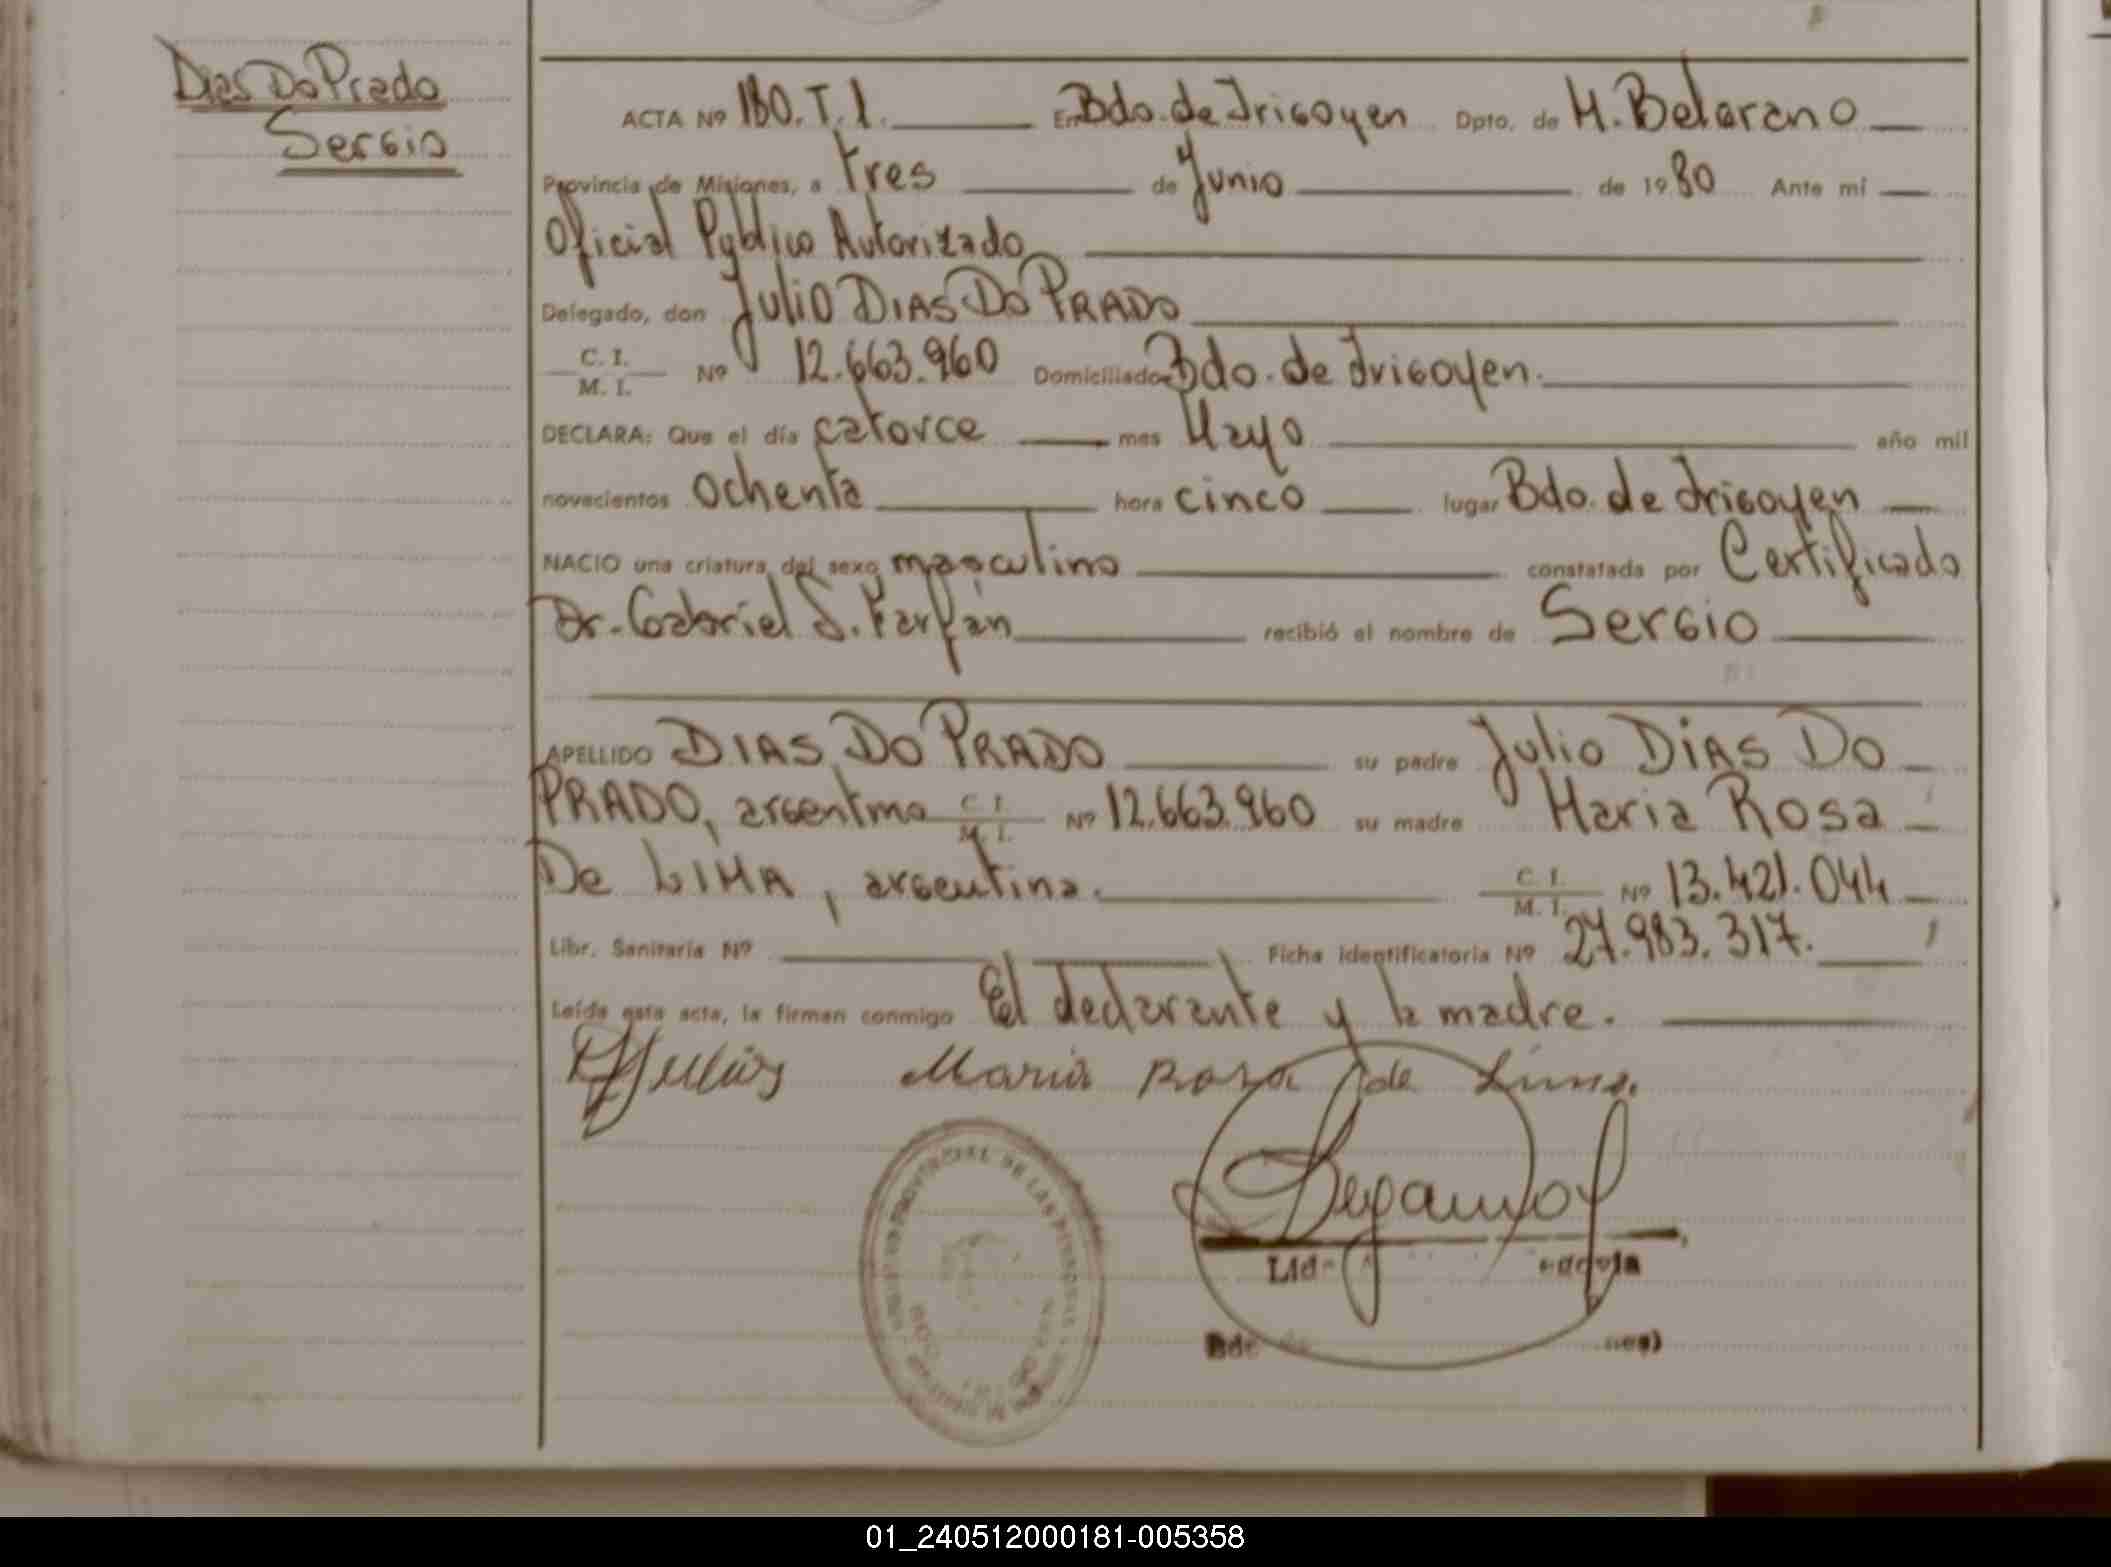 Dias Do Prado
Sergio
ACTA Nº 180.T.1. En Bdo. de Irigoyen Dpto. de M. Belgrano
Provincia de Misiones, a tres de Junio de 1980 Ante mí
Oficial Público Autorizado
Delegado, don Julio DIAS DO PRADO
C. I.
M. I. Nº 12.663.960 Domiciliado Bdo. de Irigoyen.
DECLARA: Que el día catorce mes Mayo año mil
novecientos ochenta hora cinco lugar Bdo. de Irigoyen
NACIO una criatura del sexo masculino constatada por Certificado
Dr. Gabriel S. Farfán recibió el nombre de Sergio
APELLIDO DIAS DO PRADO su padre Julio DIAS DO
PRADO, argentino C. I. M. I. Nº 12.663.960 su madre Maria Rosa
De LIMA, argentina. C. I. M. I. Nº 13.421.044
Libr. Sanitaria Nº Ficha identificatoria Nº 27.983.317.
Leída esta acta, la firman conmigo El declarante y la madre.
Maria Rosa de Lima.
01_240512000181-005358